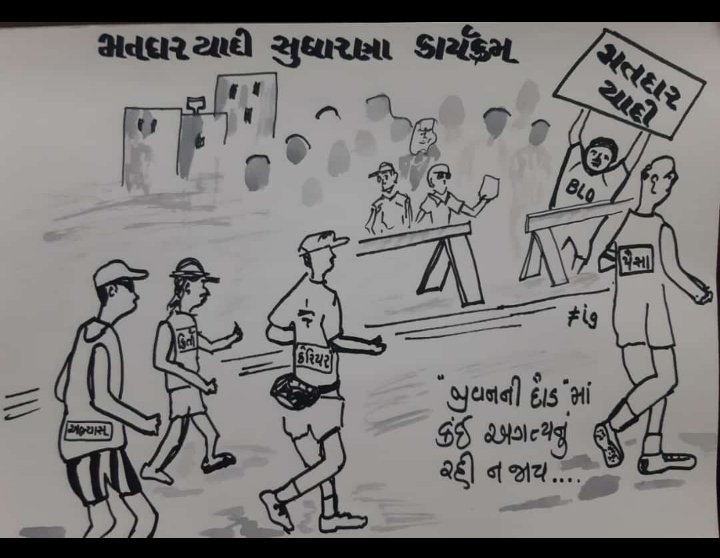 મતદાર યાદી સુધારણા કાર્યક્રમ
મતદાર
યાદી
BLO
પૈસા
કીર્તિ
કેરિયર
અભ્યાસ
"જીવનની દોડ"માં
કંઈ અગત્યનું
રહી ન જાય....